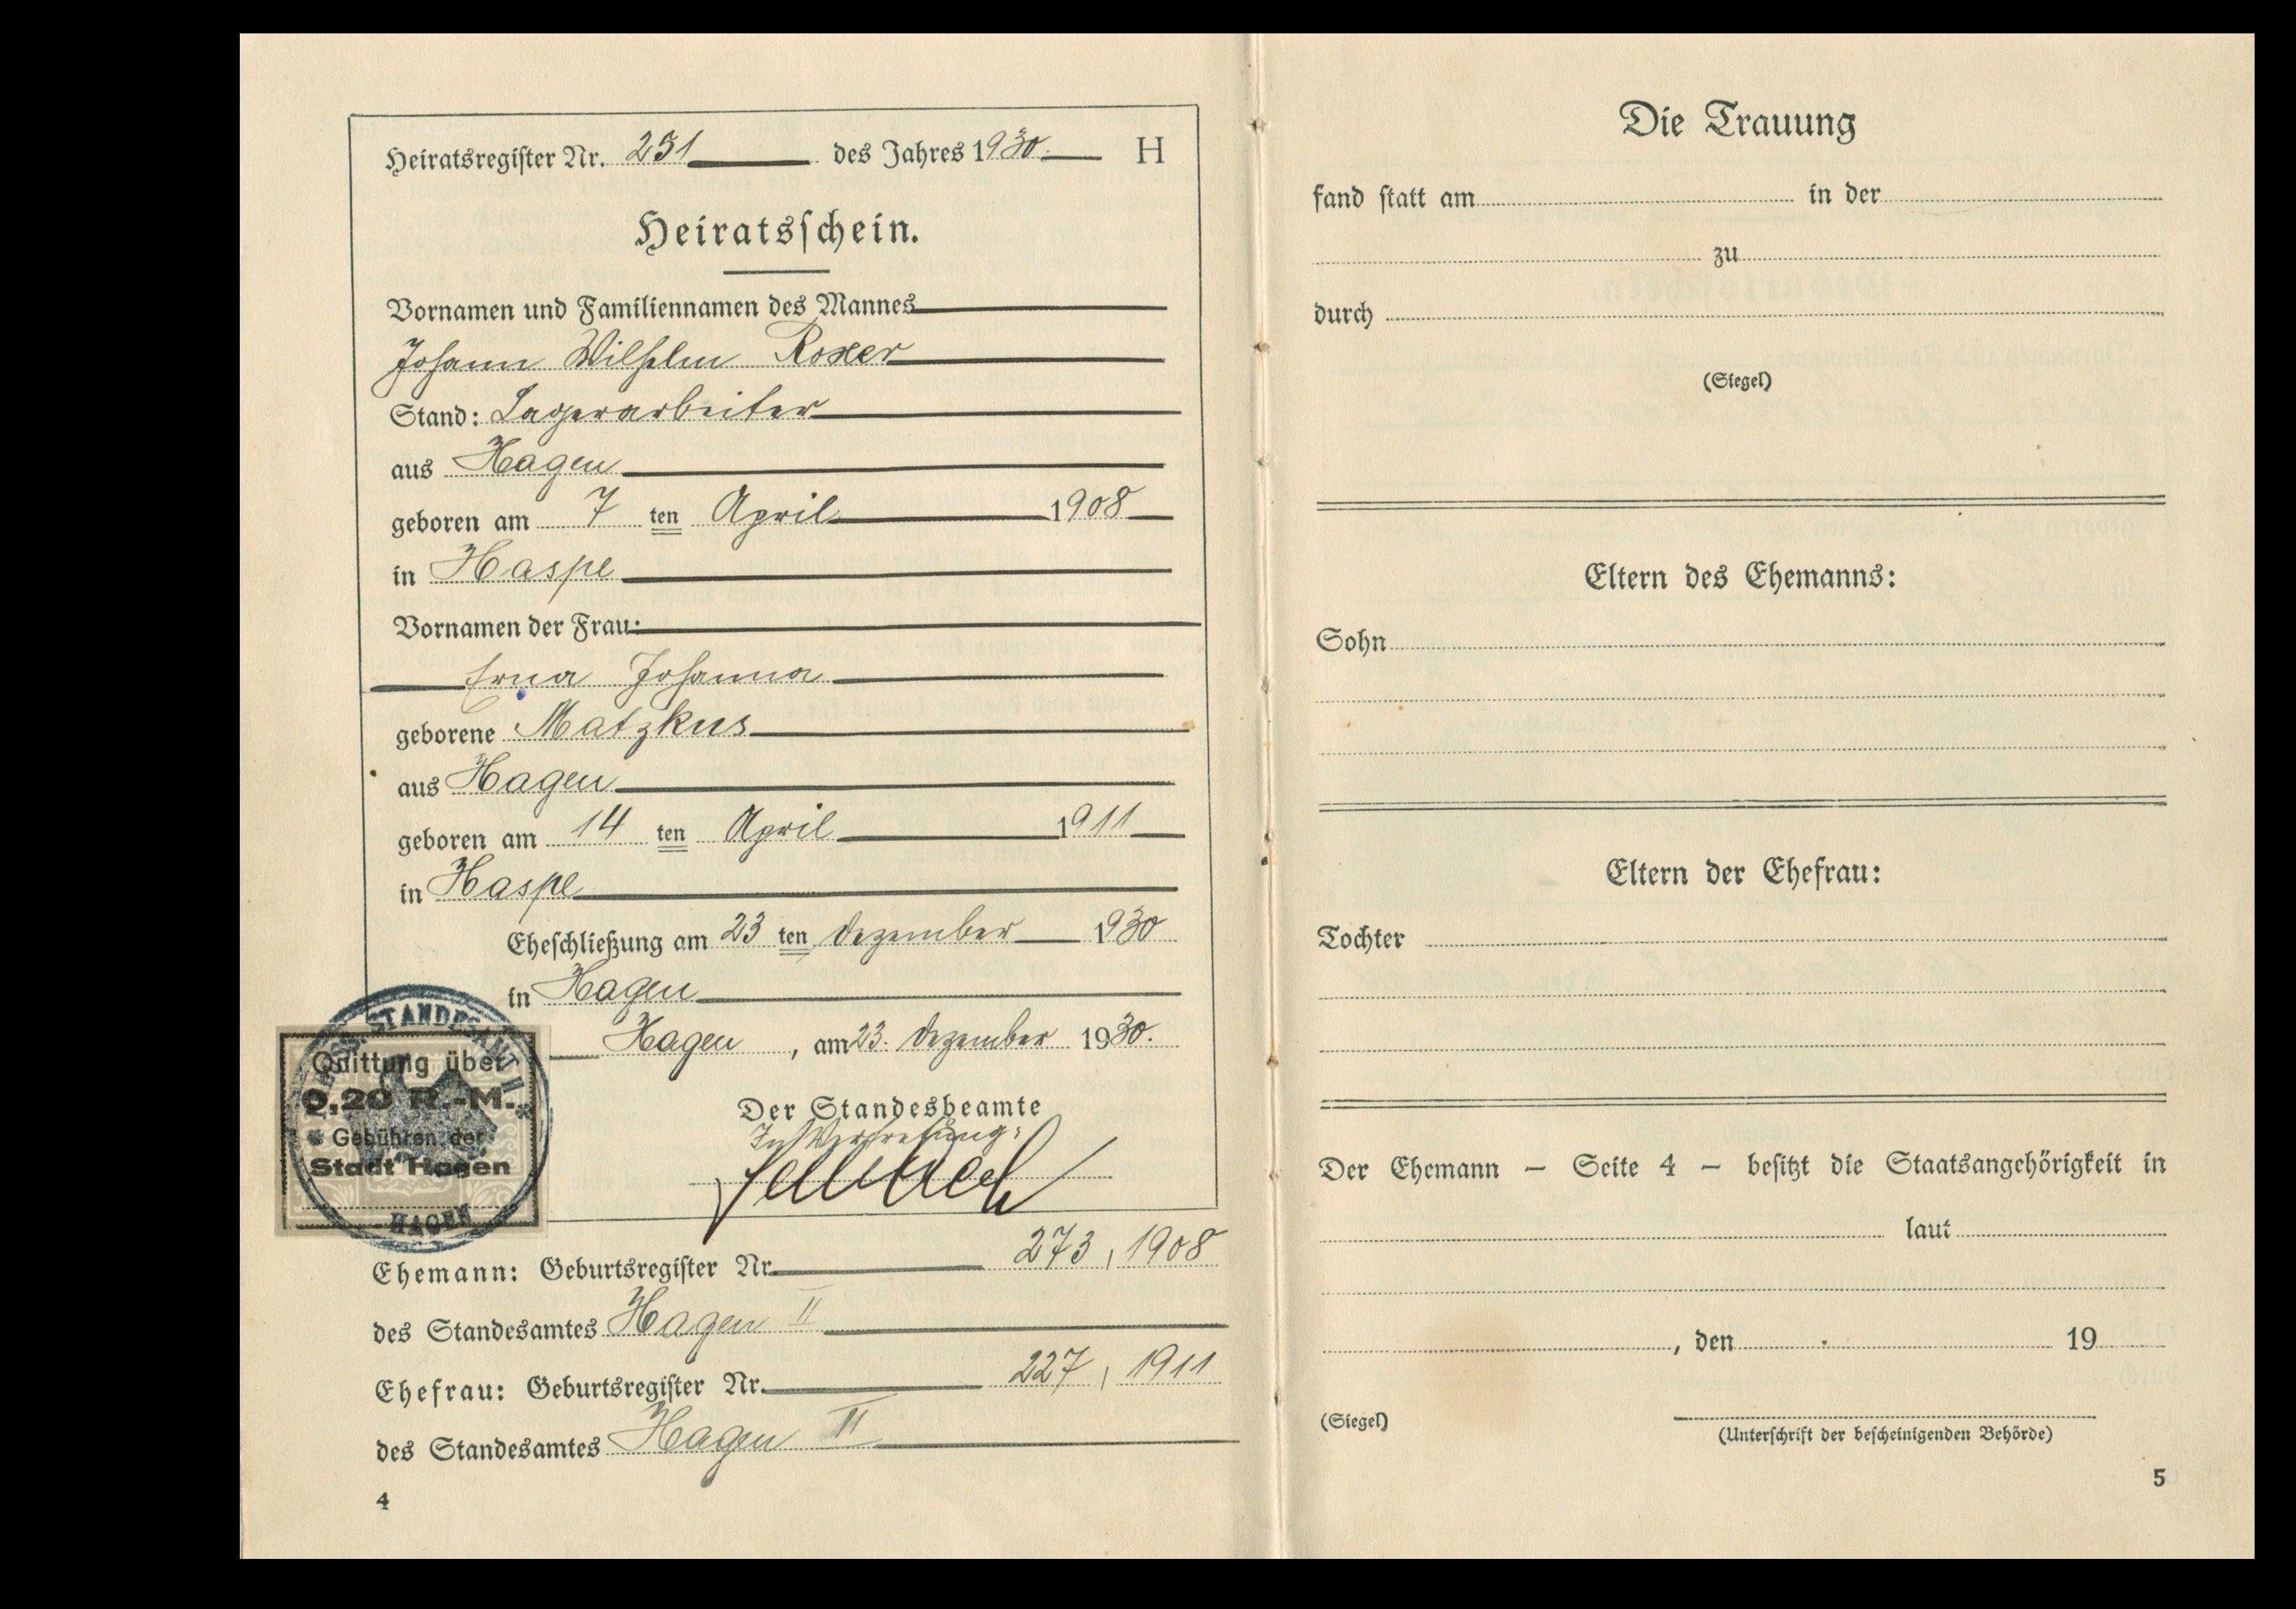 Heiratsregister Nr. 251 des Jahres 1930. H
Heiratsschein.
Vornamen und Familiennamen des Mannes
Johann Wilhelm Roxer
Stand: Lagerarbeiter
aus Hagen
geboren am 7 ten April 1908
in Haspe
Vornamen der Frau:
Erna Johanna
geborene Matzkus
aus Hagen
geboren am 14 ten April 1911
in Haspe
Eheschließung am 23 ten Dezember 1930
in Hagen
Hagen, am 23. Dezember 1930.
STANDESAMT II
Quittung über
0,20 R.-M.
Gebühren der
Stadt Hagen
HAGEN
Der Standesbeamte
In Vertretung:
Ehemann: Geburtsregister Nr. 273, 1908
des Standesamtes Hagen II
Ehefrau: Geburtsregister Nr. 227, 1911
des Standesamtes Hagen II
4
Die Trauung
fand statt am in der
zu
durch
(Siegel)
Eltern des Ehemanns:
Sohn
Eltern der Ehefrau:
Tochter
Der Ehemann – Seite 4 – besitzt die Staatsangehörigkeit in
laut
, den 19
(Siegel)
(Unterschrift der bescheinigenden Behörde)
5